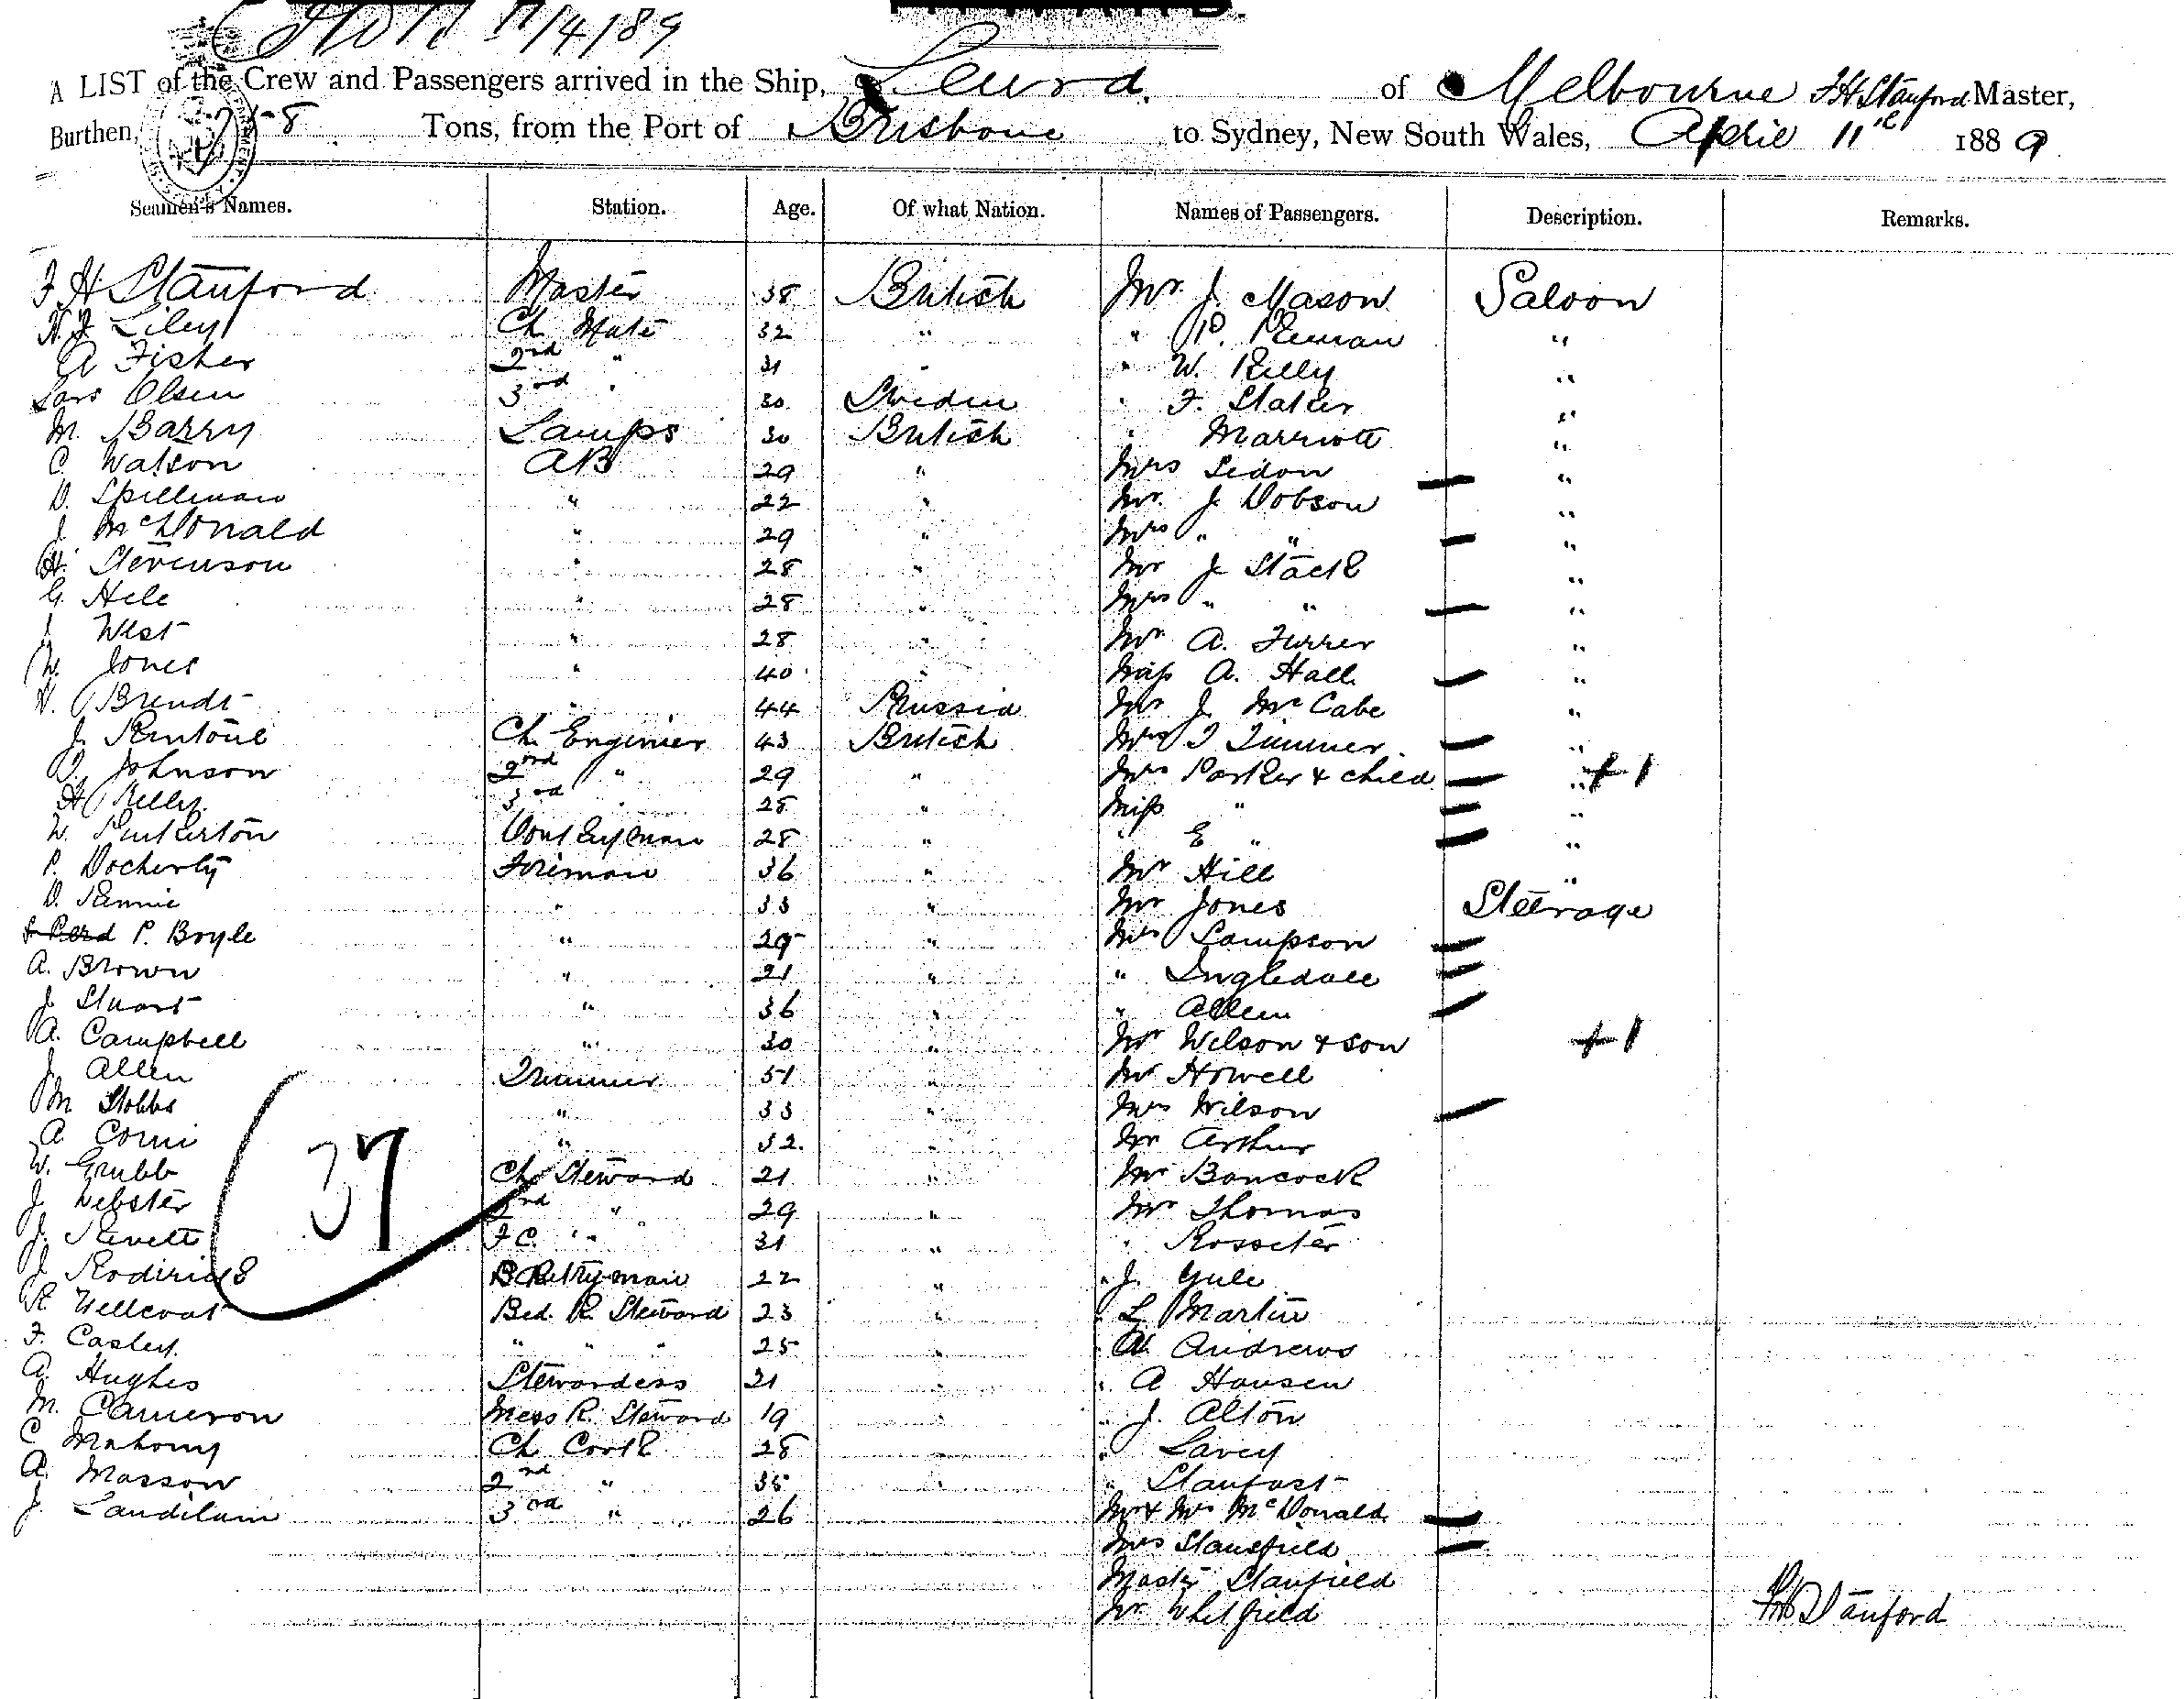 11/4/89
A LIST of the Crew and Passengers arrived in the Ship, of Melbourne F H Stanford Master,
Burthen, Tons, from the Port of Brisbane to Sydney, New South Wales, April 11th 1889
Seamen's Names. Station. Age. Of what Nation. Names of Passengers. Description. Remarks.
F H Stanford Master 38 British Mr. J. Mason Saloon
Liley Ch Mate 32 " " P. "
A Fisher 2nd " 31 " " W. Kelly "
Lars Olsen 3rd " 30 Sweden " F. Slater "
M. Barry Lamps 30 British " Marriott "
C. Watson AB 29 " Mrs Sedon "
D. Spillman " 22 " Mr. J. Dobson "
J. McDonald " 29 " Mrs " " "
H. Stevenson " 28 " Mr J Stack "
G. Hele " 28 " Mrs " " "
J West " 28 " Mr A. Furrer "
W. Jones " 40 " Miss A. Hall "
H. Brendt " 44 Russia Mr J. McCabe "
J. Rentoul Ch. Engineer 43 British Mrs "
D. Johnson 2nd " 29 " Mrs Parker & child " +1
H Kelly 3rd " 28 " Miss " "
W. Pinkerton Donkeyman 28 " " E " "
P. Docherty Fireman 36 " Mr Hill "
D. Rennie " 33 " Mr Jones Steerage
P. Boyle " 29 " Mrs Sampson
A. Brown " 21 " " Ingledale
J Stuart " 36 " " Allen
A. Campbell " 30 " Mr Wilson & son +1
J. Allen Trimmer 51 " Mr Howell
M. Stobbs " 33 " Mrs Wilson
A. " 32 " Mr Arthur
W. Grubb Ch Steward 21 " Mr Bancock
J. Webster 2nd " 29 " Mr Thomas
J. Revett F C. " 31 " " Rosseter
J 22 " " J. Yule
R. Bed. R. Steward 23 " " L Martin
F. Casley " " " 25 " " A. Andrews
A. Hughes Stewardess 21 " " A Hansen
M. Cameron Mess R. Steward 19 " " J. Alton
C Mahony Ch Cook 28 " " Lavey
A. Masson 2nd " 35 " "
J. 3rd " 26 Mr & Mrs McDonald
Mrs Stansfield
Master Stanfield
Mr Whitfield
37
F H Stanford